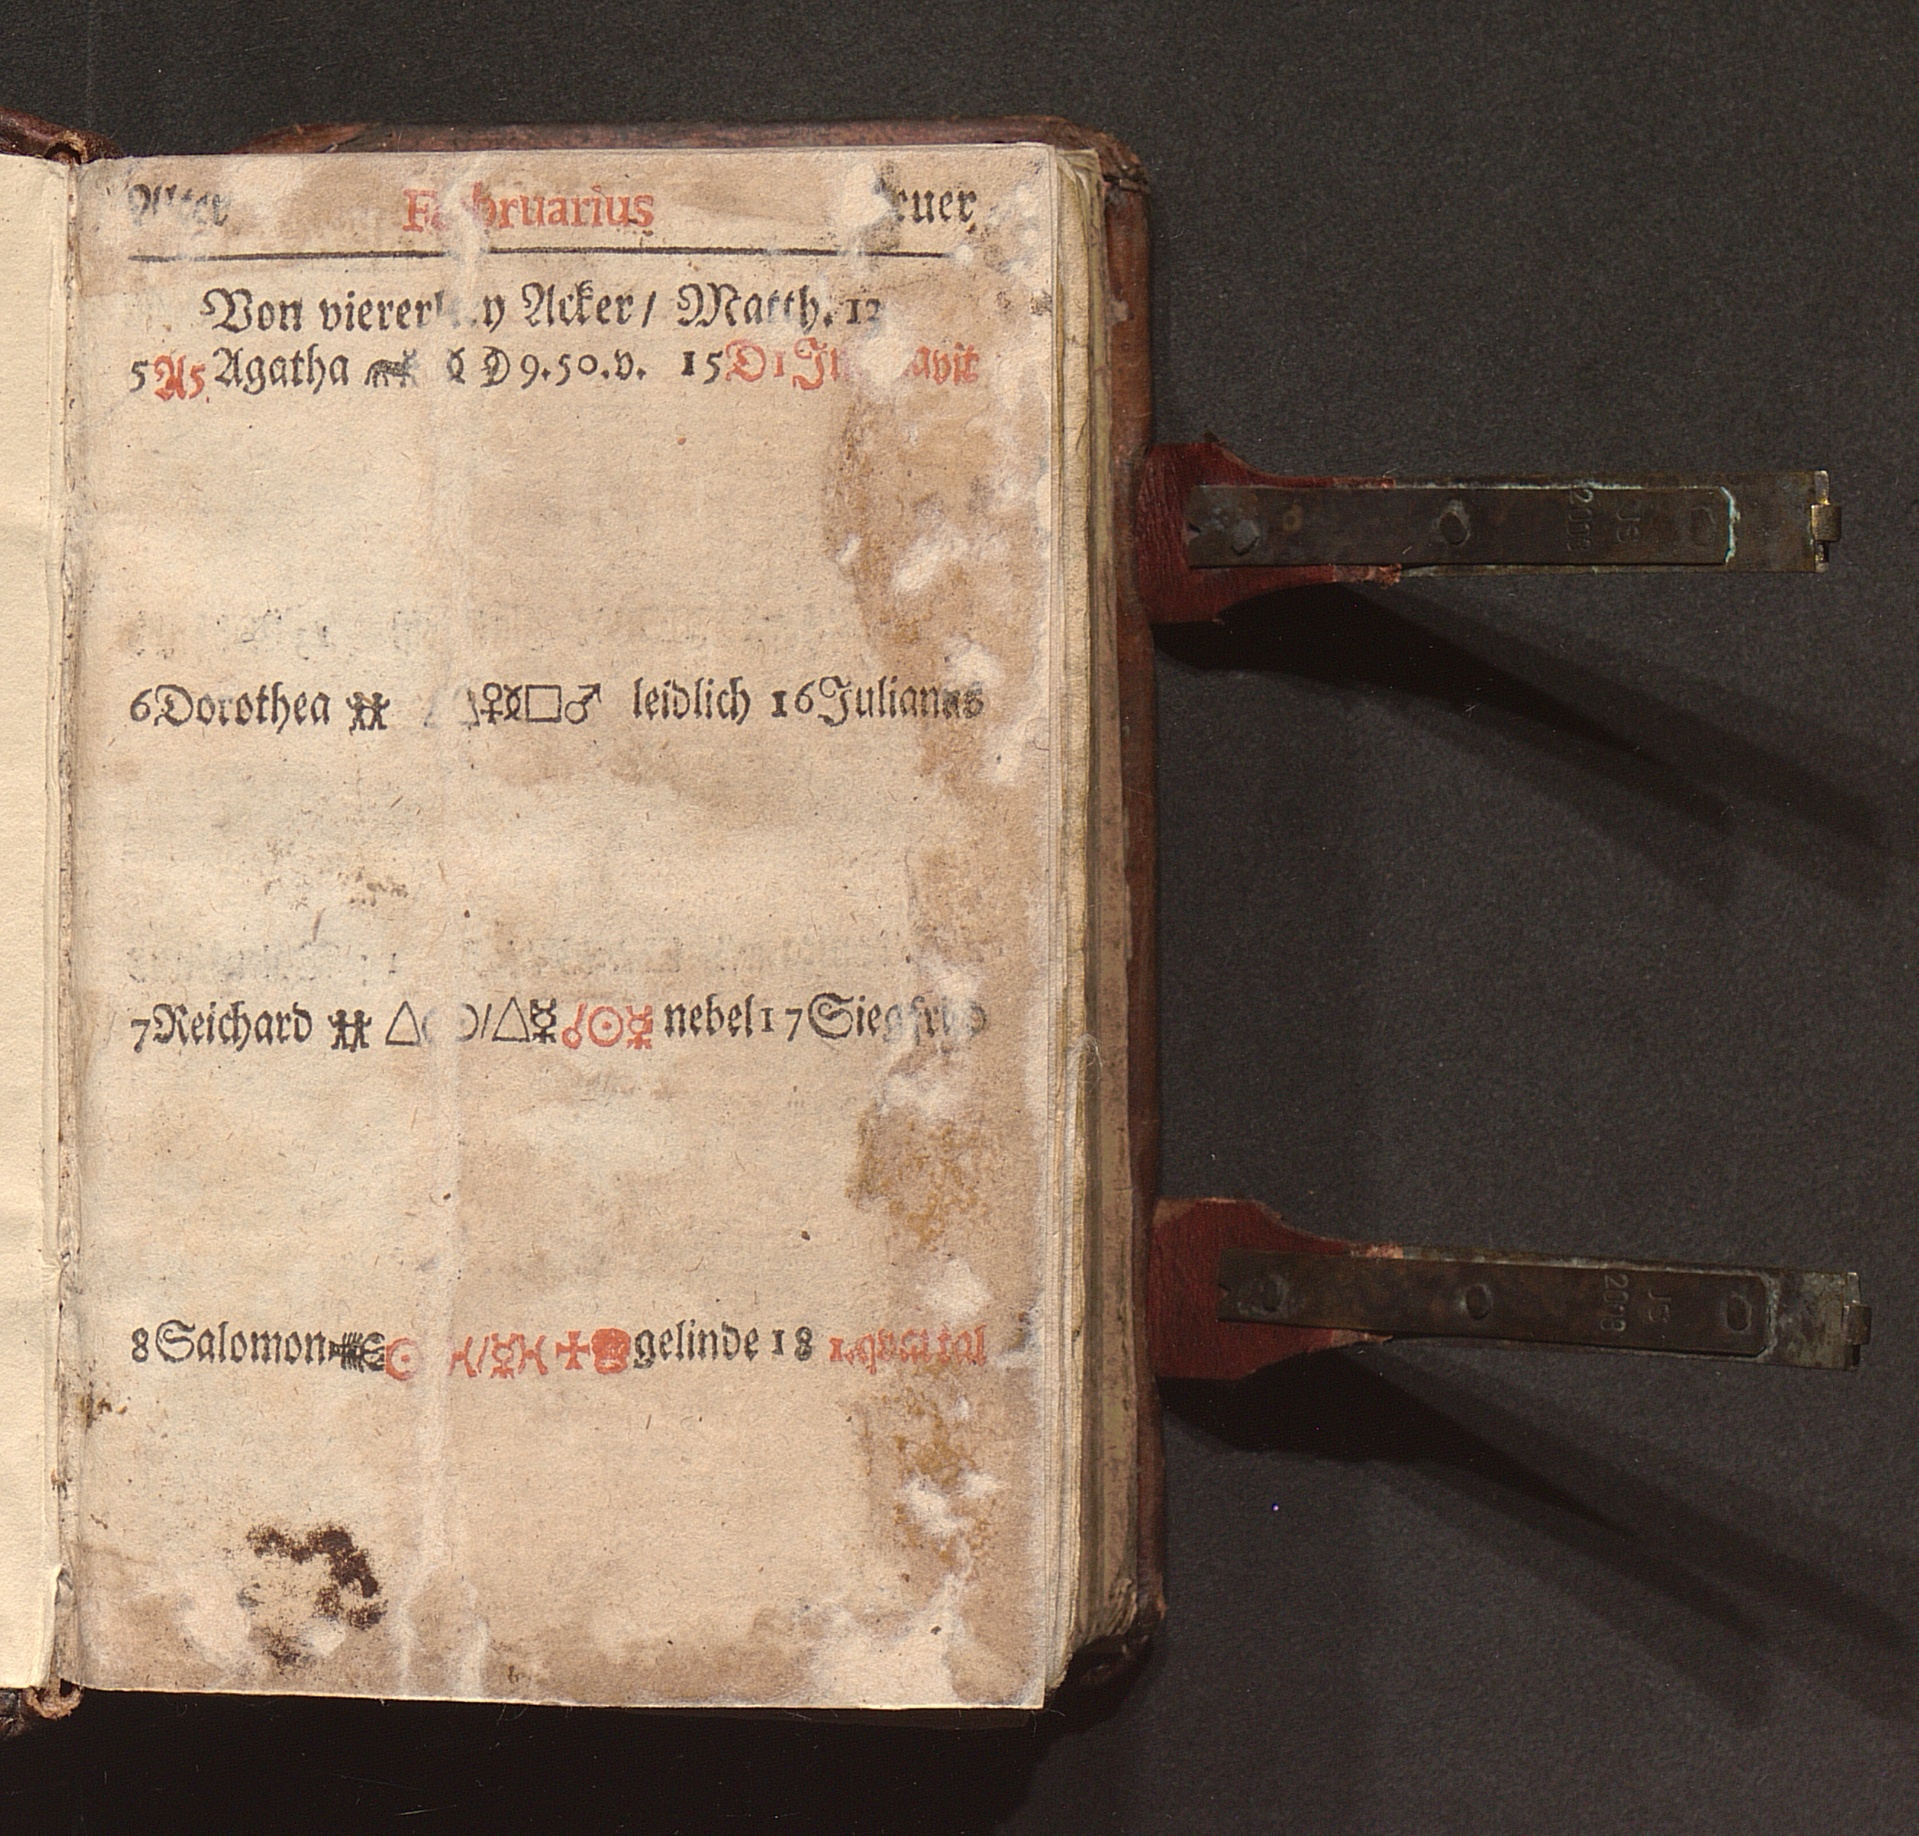 Alter Februarius Neuer
Von viererley Acker / Matth. 13
5 A5 Agatha ☽ 9.50.v. 15 D1 Invocavit
6 Dorothea △♀☿□♂ leidlich 16 Julianus
7 Reichard △ /△☿ ☌☉☿ nebel 17 Siegfried
8 Salomon ☉ /☿ ✠ gelinde 18 1. quartal
JS
2008
JS
2008